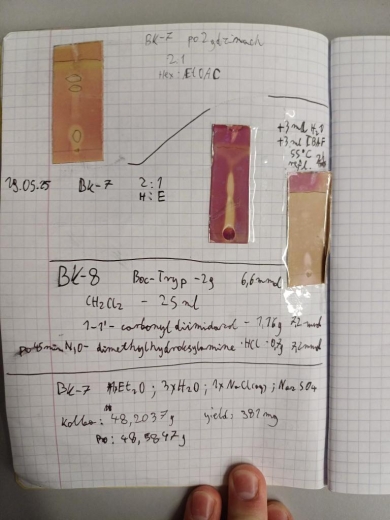 BK-7 po 2 godzinach
2:1
Hex: EtOAC
+3 ml H2O
+3 ml TBAF
55°C
refl.
29.05.25 BK-7 2:1
H:E
BK-8 Boc-Tryp - 2g 6,6 mmol
CH2Cl2 - 25 ml
1-1'- carbonyl diimidazol - 1,16g 7,2 mmol
N,O- dimethylhydroksylamine ·HCl 7,2 mmol
BK-7 Et2O ; 3xH2O ; 1x NaCl(aq) ; Na2SO4
Kolba: 48,2037g yield: 381 mg
po: 48,5847g